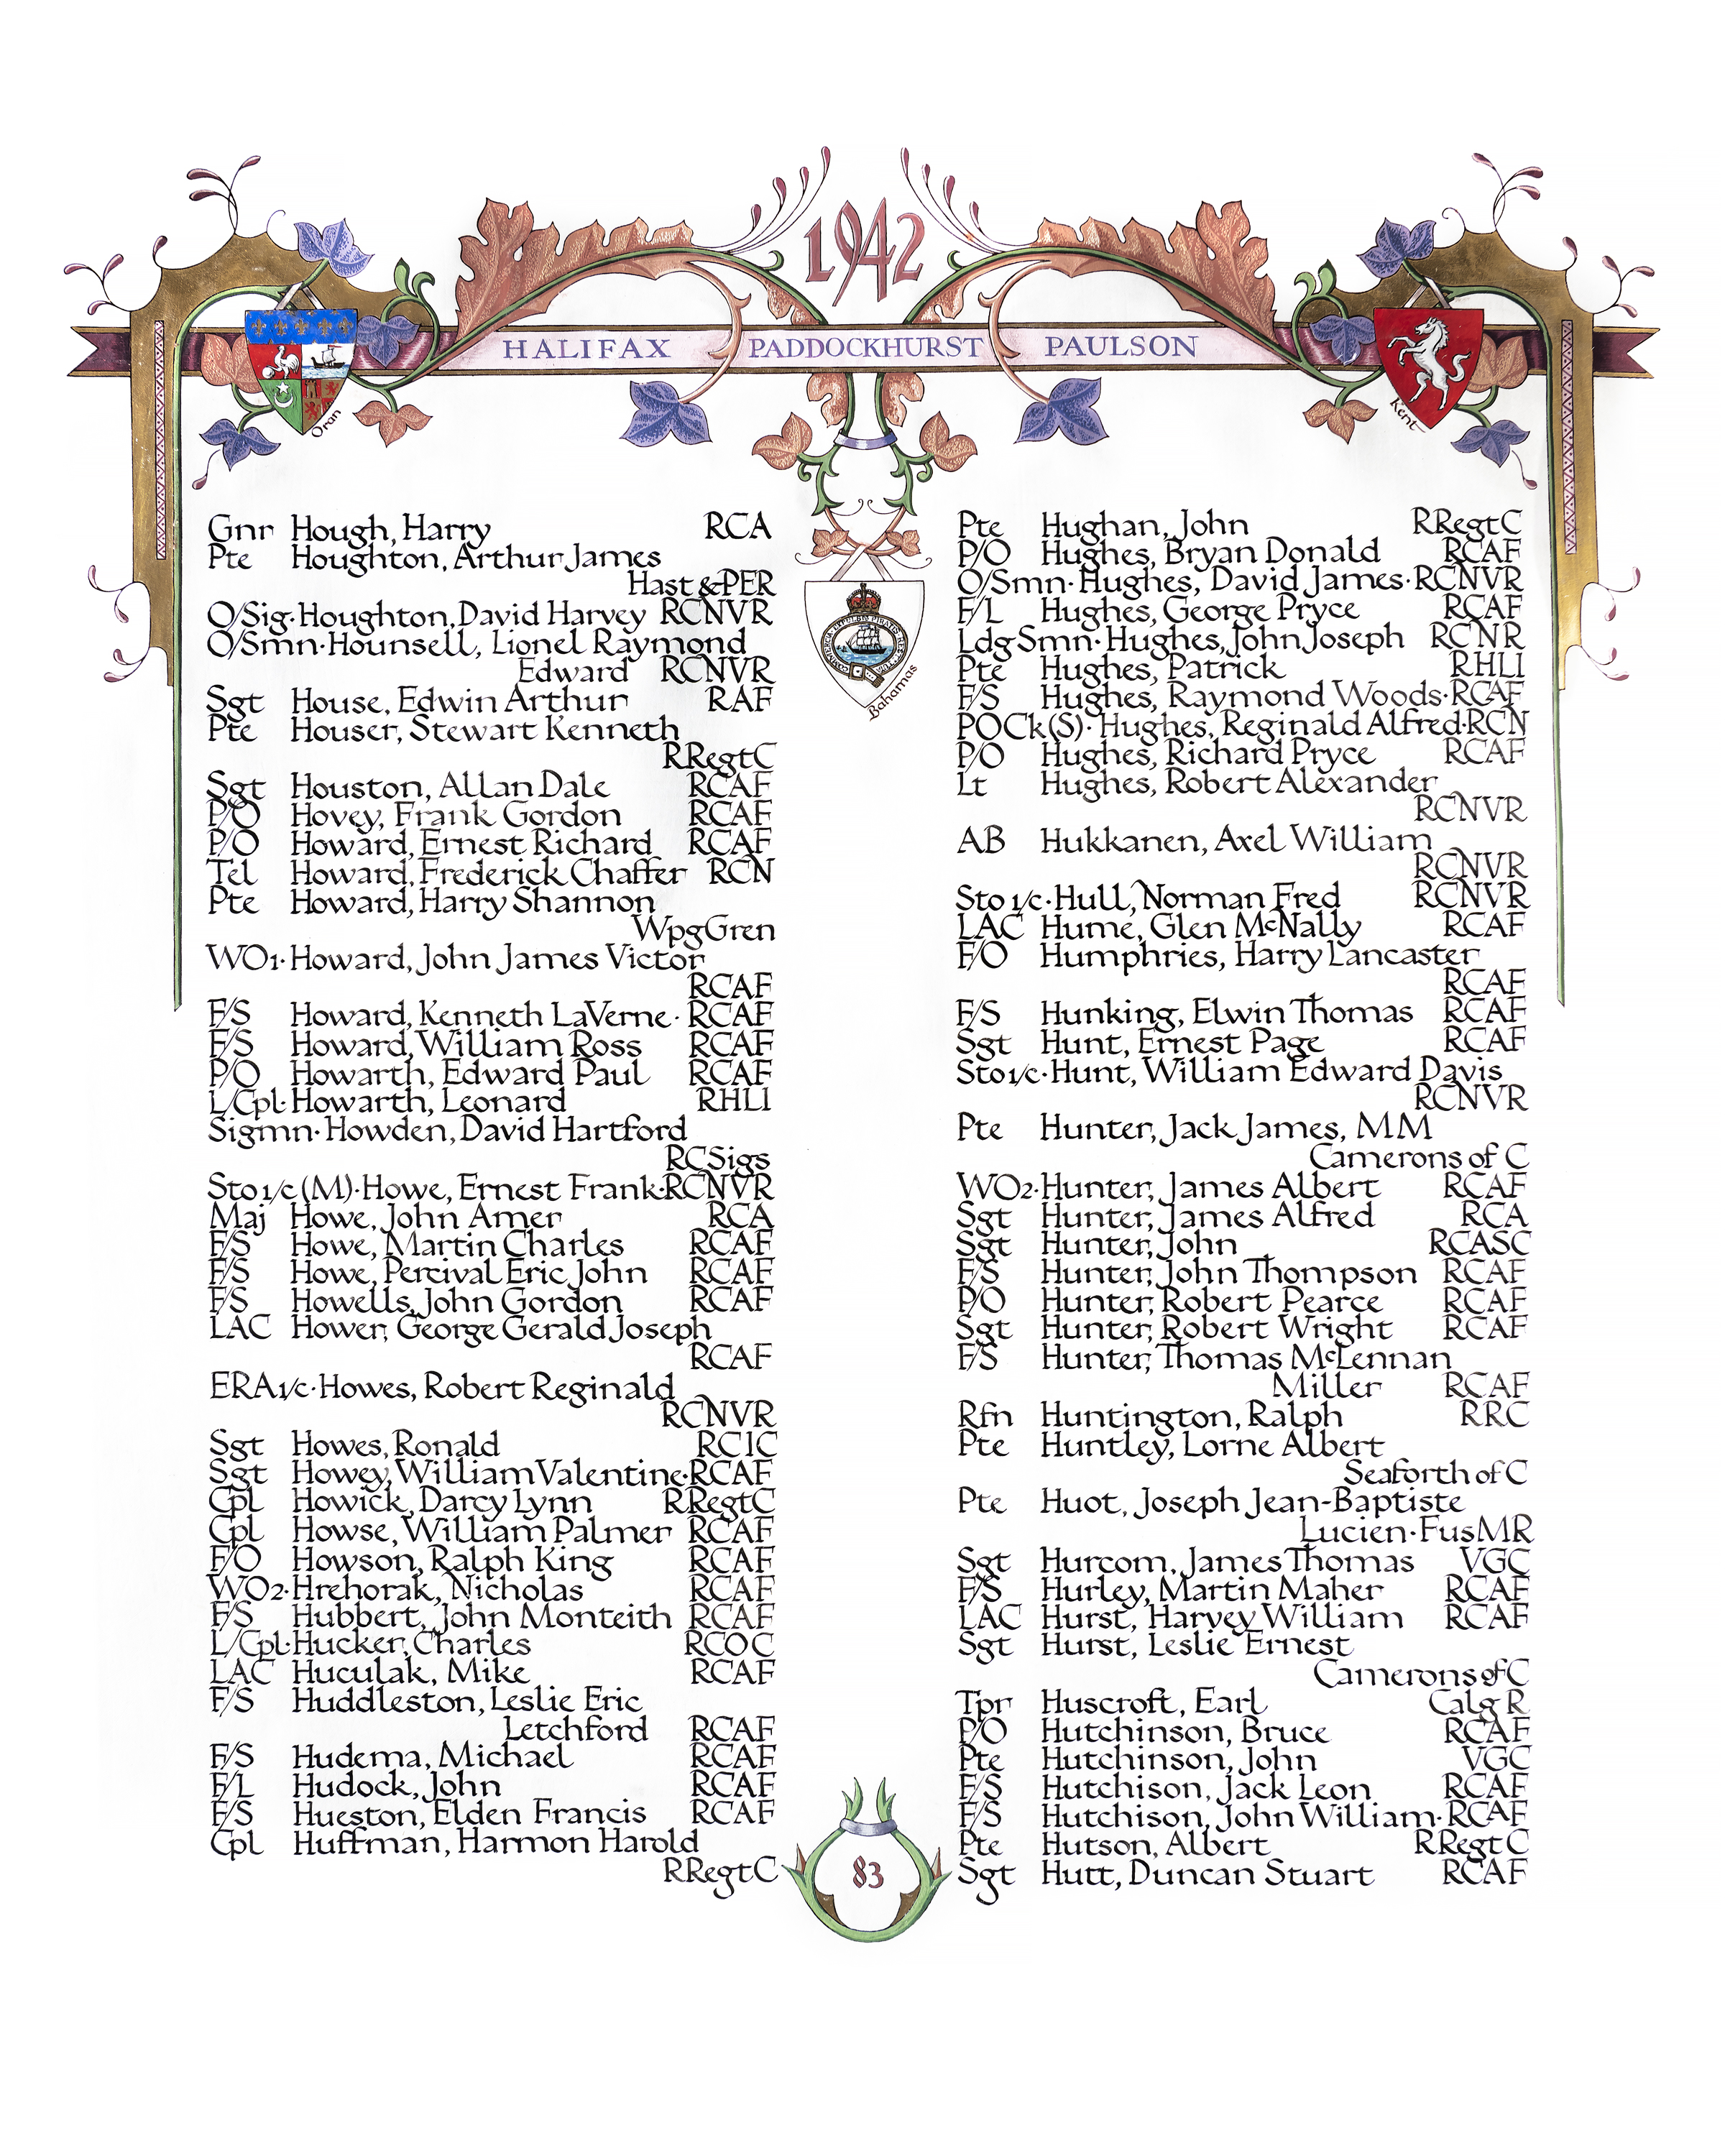 1942
HALIFAX PADDOCKHURST PAULSON
Oran
Kent
Bahamas
Gnr Hough, Harry RCA
Pte Houghton, Arthur James
Hast & PER
O/Sig· Houghton, David Harvey RCNVR
O/Smn· Hounsell, Lionel Raymond
Edward RCNVR
Sgt House, Edwin Arthur RAF
Pte Houser, Stewart Kenneth
RRegtC
Sgt Houston, Allan Dale RCAF
P/O Hovey, Frank Gordon RCAF
P/O Howard, Ernest Richard RCAF
Tel Howard, Frederick Chaffer RCN
Pte Howard, Harry Shannon
WpgGren
WO1· Howard, John James Victor
RCAF
F/S Howard, Kenneth LaVerne· RCAF
F/S Howard, William Ross RCAF
P/O Howarth, Edward Paul RCAF
L/Cpl· Howarth, Leonard RHLI
Sigmn· Howden, David Hartford
RCSigs
Sto 1/c (M)· Howe, Ernest Frank· RCNVR
Maj Howe, John Amer RCA
F/S Howe, Martin Charles RCAF
F/S Howe, Percival Eric John RCAF
F/S Howells, John Gordon RCAF
LAC Hower, George Gerald Joseph
RCAF
ERA 1/c· Howes, Robert Reginald
RCNVR
Sgt Howes, Ronald RCIC
Sgt Howey, William Valentine· RCAF
Cpl Howick, Darcy Lynn RRegtC
Cpl Howse, William Palmer RCAF
F/O Howson, Ralph King RCAF
WO2· Hrehorak, Nicholas RCAF
F/S Hubbert, John Monteith RCAF
L/Cpl· Hucker, Charles RCOC
LAC Huculak, Mike RCAF
F/S Huddleston, Leslie Eric
Letchford RCAF
F/S Hudema, Michael RCAF
F/L Hudock, John RCAF
F/S Hueston, Elden Francis RCAF
Cpl Huffman, Harmon Harold
RRegtC
Pte Hughan, John RRegtC
P/O Hughes, Bryan Donald RCAF
O/Smn· Hughes, David James· RCNVR
F/L Hughes, George Pryce RCAF
LdgSmn· Hughes, John Joseph RCNR
Pte Hughes, Patrick RHLI
F/S Hughes, Raymond Woods· RCAF
POCk(S)· Hughes, Reginald Alfred· RCN
P/O Hughes, Richard Pryce RCAF
Lt Hughes, Robert Alexander
RCNVR
AB Hukkanen, Axel William
RCNVR
Sto 1/c· Hull, Norman Fred RCNVR
LAC Hume, Glen McNally RCAF
F/O Humphries, Harry Lancaster
RCAF
F/S Hunking, Elwin Thomas RCAF
Sgt Hunt, Ernest Page RCAF
Sto 1/c· Hunt, William Edward Davis
RCNVR
Pte Hunter, Jack James, MM
Camerons of C
WO2· Hunter, James Albert RCAF
Sgt Hunter, James Alfred RCA
Sgt Hunter, John RCASC
F/S Hunter, John Thompson RCAF
P/O Hunter, Robert Pearce RCAF
Sgt Hunter, Robert Wright RCAF
F/S Hunter, Thomas McLennan
Miller RCAF
Rfn Huntington, Ralph RRC
Pte Huntley, Lorne Albert
Seaforth of C
Pte Huot, Joseph Jean-Baptiste
Lucien· FusMR
Sgt Hurcom, James Thomas VGC
F/S Hurley, Martin Maher RCAF
LAC Hurst, Harvey William RCAF
Sgt Hurst, Leslie Ernest
Camerons of C
Tpr Huscroft, Earl Calg R
P/O Hutchinson, Bruce RCAF
Pte Hutchinson, John VGC
F/S Hutchison, Jack Leon RCAF
F/S Hutchison, John William· RCAF
Pte Hutson, Albert RRegtC
Sgt Hutt, Duncan Stuart RCAF
83